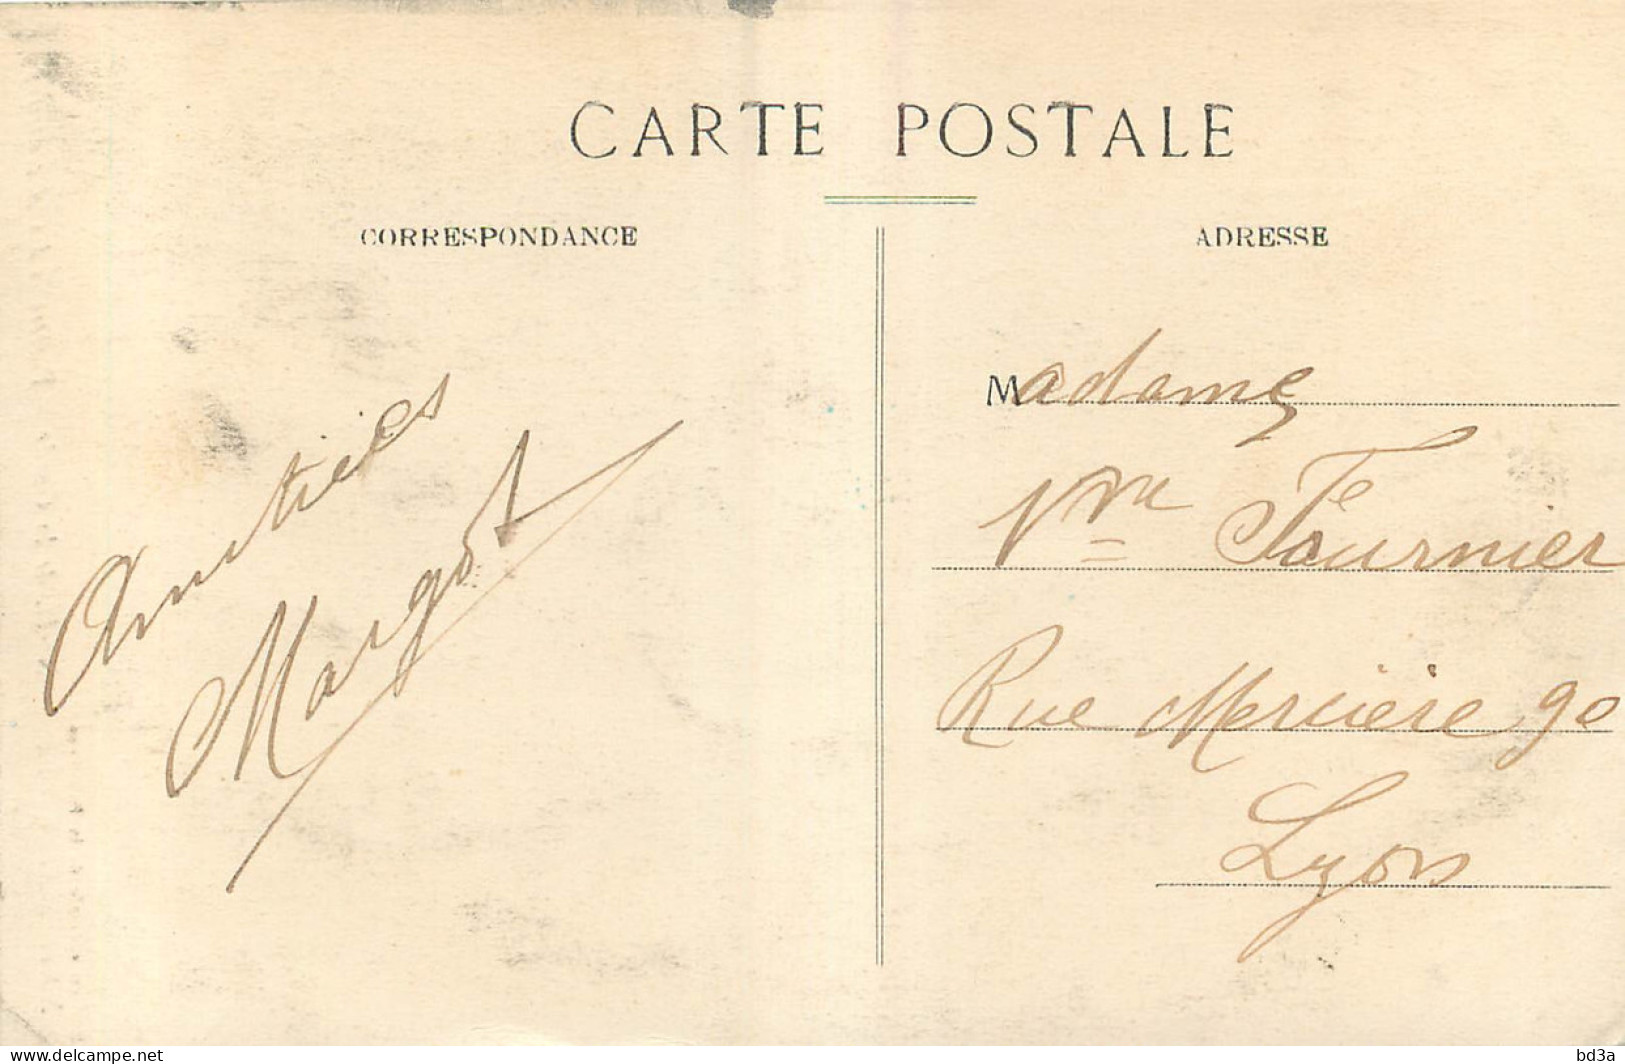 CARTE POSTALE
CORRESPONDANCE
ADRESSE
Amitiés
Margot
Madame
Vve Fournier
Rue Mercière 90
Lyon
delcampe.net
bd3a